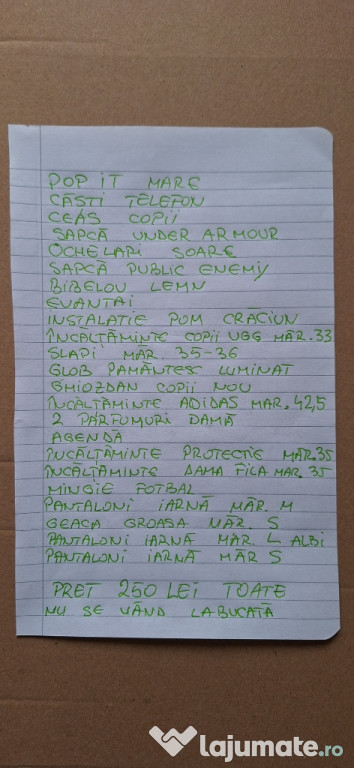 POP IT MARE
CĂSTI TELEFON
CEAS COPII
SAPCĂ UNDER ARMOUR
OCHELARI SOARE
SAPCĂ PUBLIC ENEMY
BIBELOU LEMN
EVANTAI
INSTALATIE POM CRĂCIUN
ÎNCĂLTĂMINTE COPII UGG MĂR. 33
SLAPI MĂR. 35-36
GLOB PĂMÂNTESC LUMINAT
GHIOZDAN COPII NOU
ÎNCĂLTĂMINTE ADIDAS MAR. 42,5
2 PARFUMURI DAMĂ
AGENDĂ
ÎNCĂLTĂMINTE PROTECTIE MĂR. 35
ÎNCĂLTĂMINTE DAMA FILA MAR. 35
MINGIE FOTBAL
PANTALONI IARNĂ MĂR. M
GEACA GROASA MĂR. S
PANTALONI IARNĂ MĂR. L ALBI
PANTALONI IARNĂ MĂR S
PRET 250 LEI TOATE
NU SE VÂND LA BUCATĂ
lajumate.ro